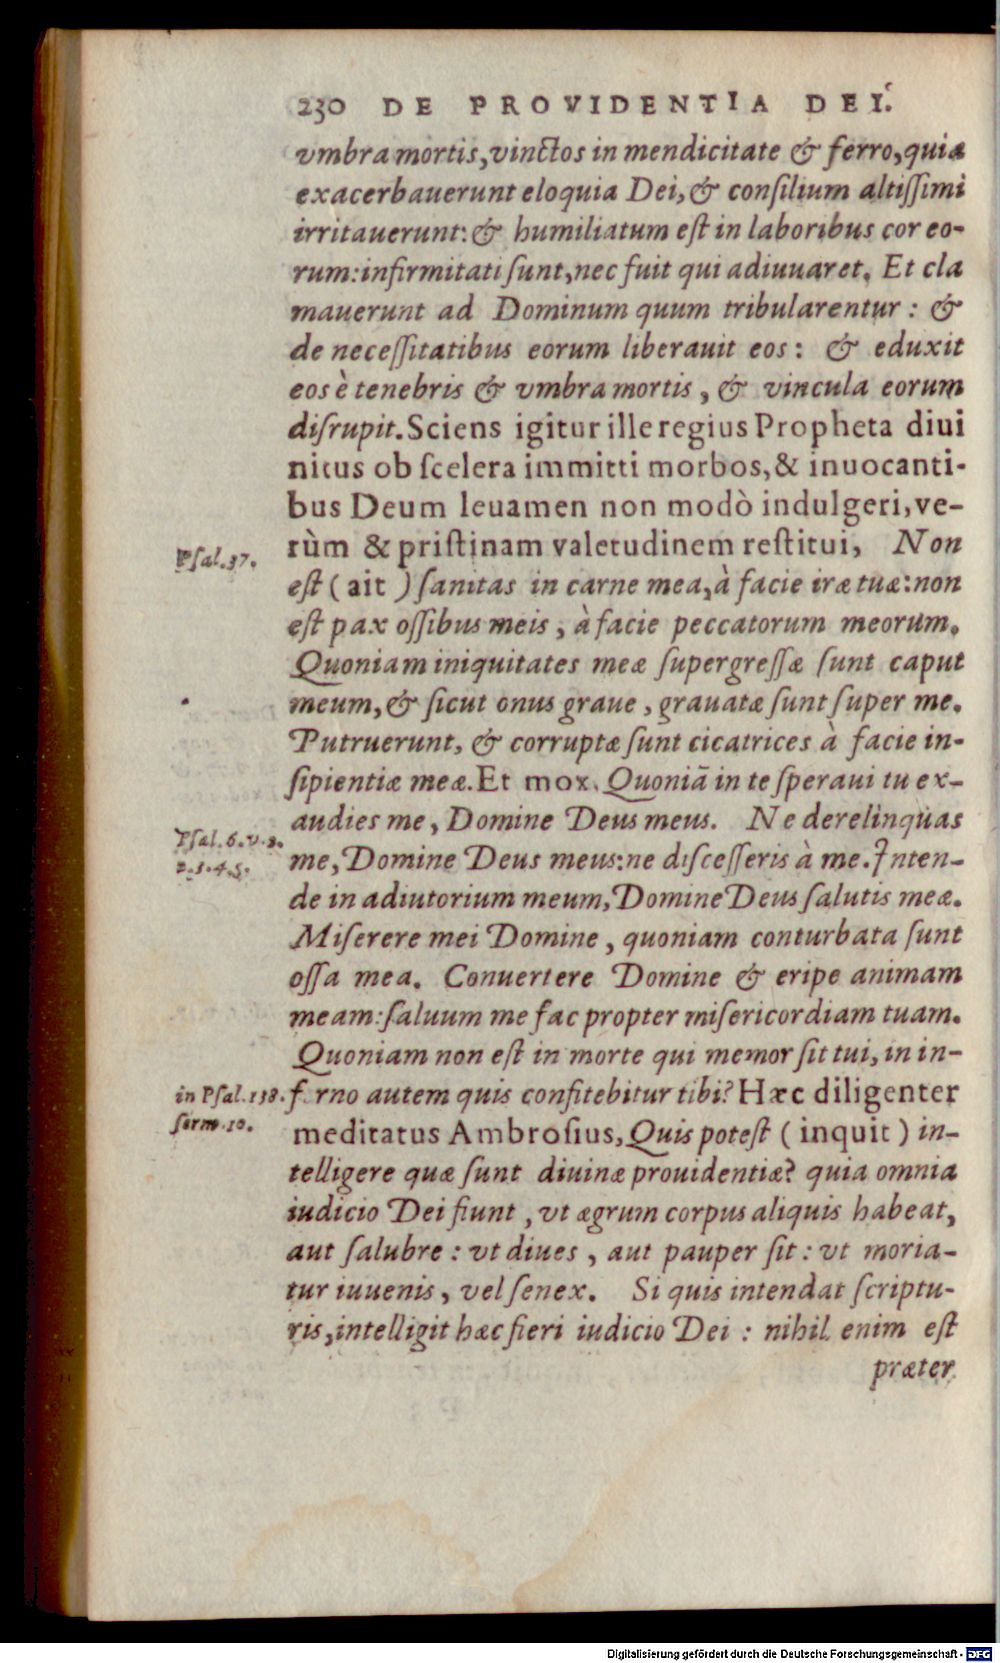 230 DE PROVIDENTIA DEI.
vmbra mortis, vinctos in mendicitate & ferro, quia
exacerbauerunt eloquia Dei, & consilium altissimi
irritauerunt: & humiliatum est in laboribus cor eo-
rum: infirmitati sunt, nec fuit qui adiuuaret. Et cla
mauerunt ad Dominum quum tribularentur: &
de necessitatibus eorum liberauit eos: & eduxit
eos è tenebris & vmbra mortis, & vincula eorum
disrupit. Sciens igitur ille regius Propheta diui
nitus ob scelera immitti morbos, & inuocanti-
bus Deum leuamen non modò indulgeri, ve-
rùm & pristinam valetudinem restitui, Non
Psal. 37.
est (ait) sanitas in carne mea, à facie iræ tuæ: non
est pax ossibus meis, à facie peccatorum meorum.
Quoniam iniquitates meæ supergressæ sunt caput
meum, & sicut onus graue, grauatæ sunt super me.
Putruerunt, & corruptæ sunt cicatrices à facie in-
sipientiæ meæ. Et mox. Quoniã in te speraui tu ex-
audies me, Domine Deus meus. Ne derelinquas
Psal. 6. v. 2.
2. 3. 4. 5.
me, Domine Deus meus: ne discesseris à me. Inten-
de in adiutorium meum, Domine Deus salutis meæ.
Miserere mei Domine, quoniam conturbata sunt
ossa mea. Conuertere Domine & eripe animam
meam: saluum me fac propter misericordiam tuam.
Quoniam non est in morte qui memor sit tui, in in-
in Psal. 138.
serm. 10.
f rno autem quis confitebitur tibi? Hæc diligenter
meditatus Ambrosius, Quis potest (inquit) in-
telligere quæ sunt diuinæ prouidentiæ? quia omnia
iudicio Dei fiunt, vt ægrum corpus aliquis habeat,
aut salubre: vt diues, aut pauper sit: vt moria-
tur iuuenis, vel senex. Si quis intendat scriptu-
ris, intelligit hæc fieri iudicio Dei: nihil enim est
præter
Digitalisierung gefördert durch die Deutsche Forschungsgemeinschaft - DFG